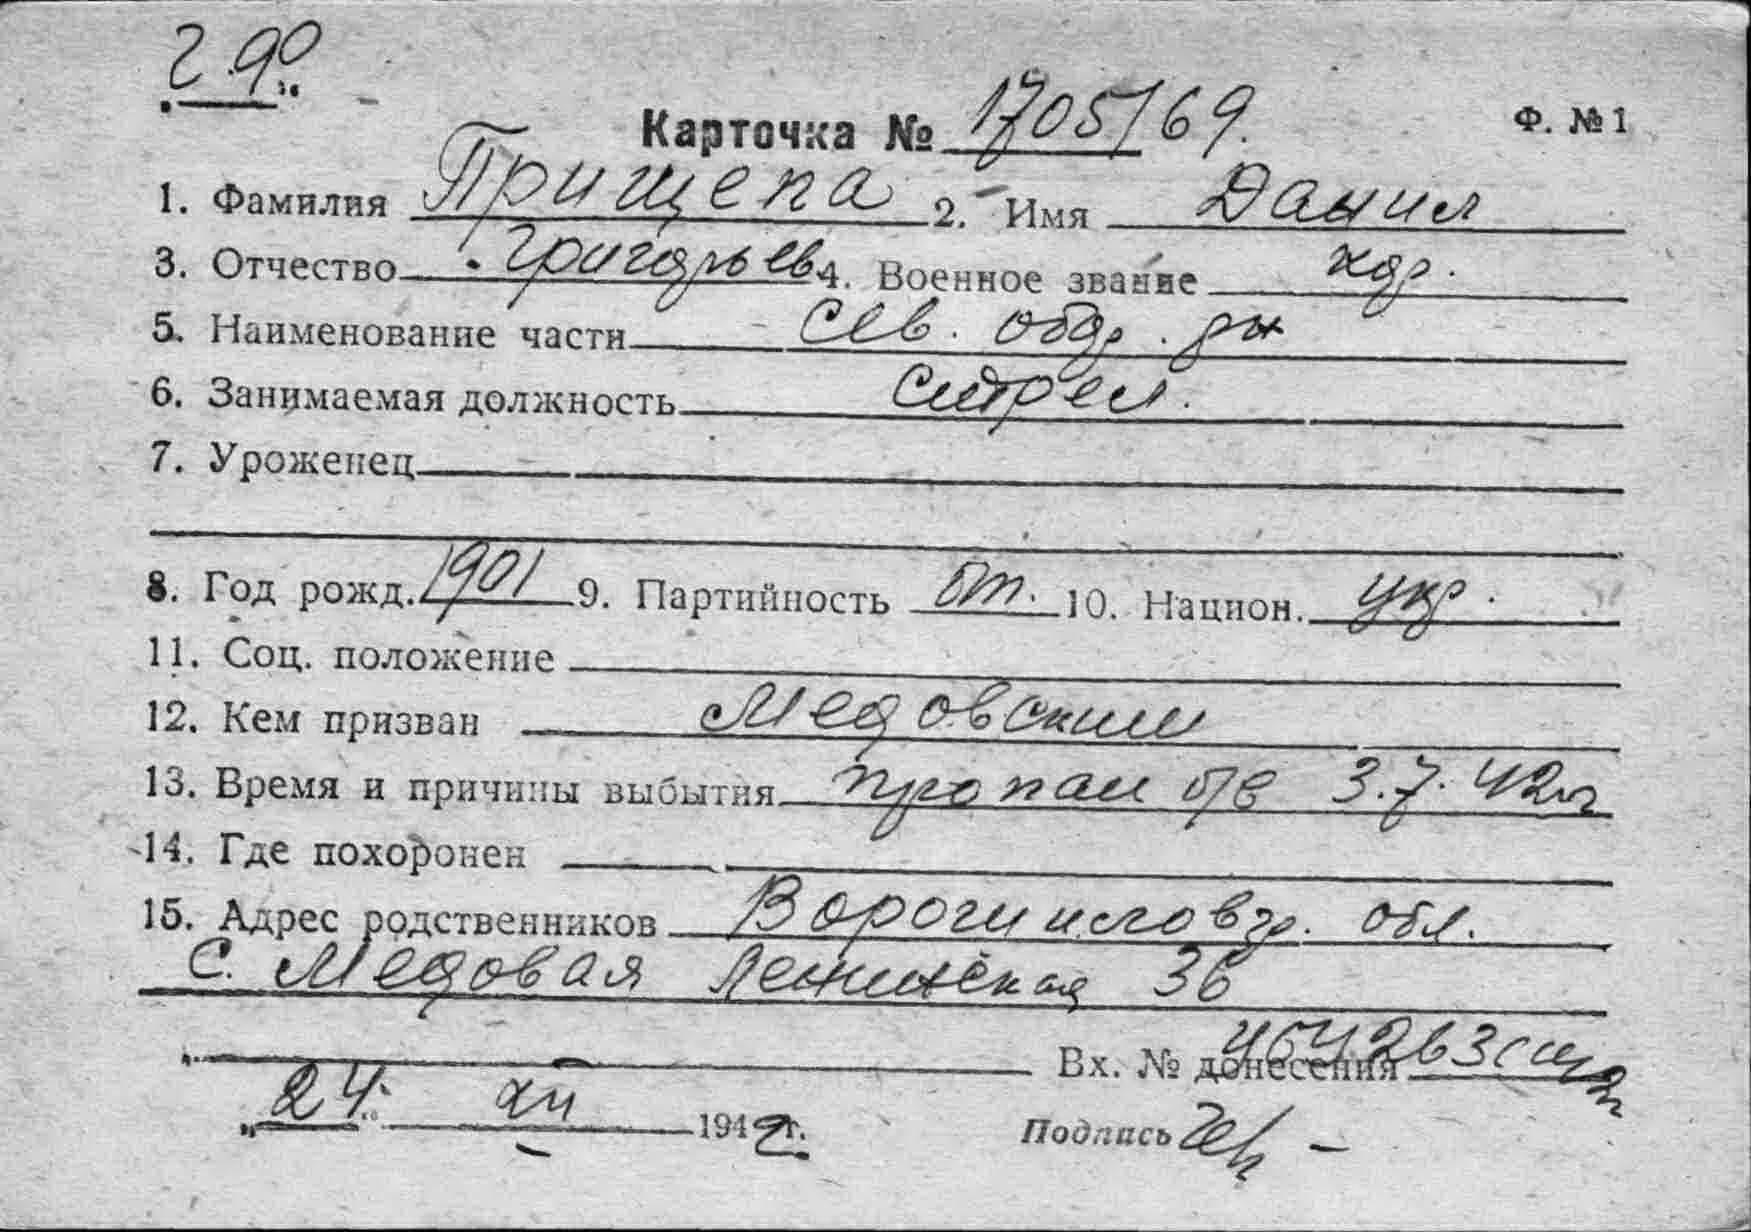 290
Карточка № 1705/69. Ф. №1
1. Фамилия Прищепа 2. Имя Данил
3. Отчество Григорьев 4. Военное звание кр.
5. Наименование части Сев.
6. Занимаемая должность стрел.
7. Уроженец
8. Год рожд. 1901 9. Партийность бп. 10. Национ. укр.
11. Соц. положение
12. Кем призван Медовским
13. Время и причины выбытия пропал б/в 3.7.42г
14. Где похоронен
15. Адрес родственников Ворошиловгр. обл.
с. Медовая Ленинская 36
Вх. № донесения
"24" XII 1942г.
Подпись